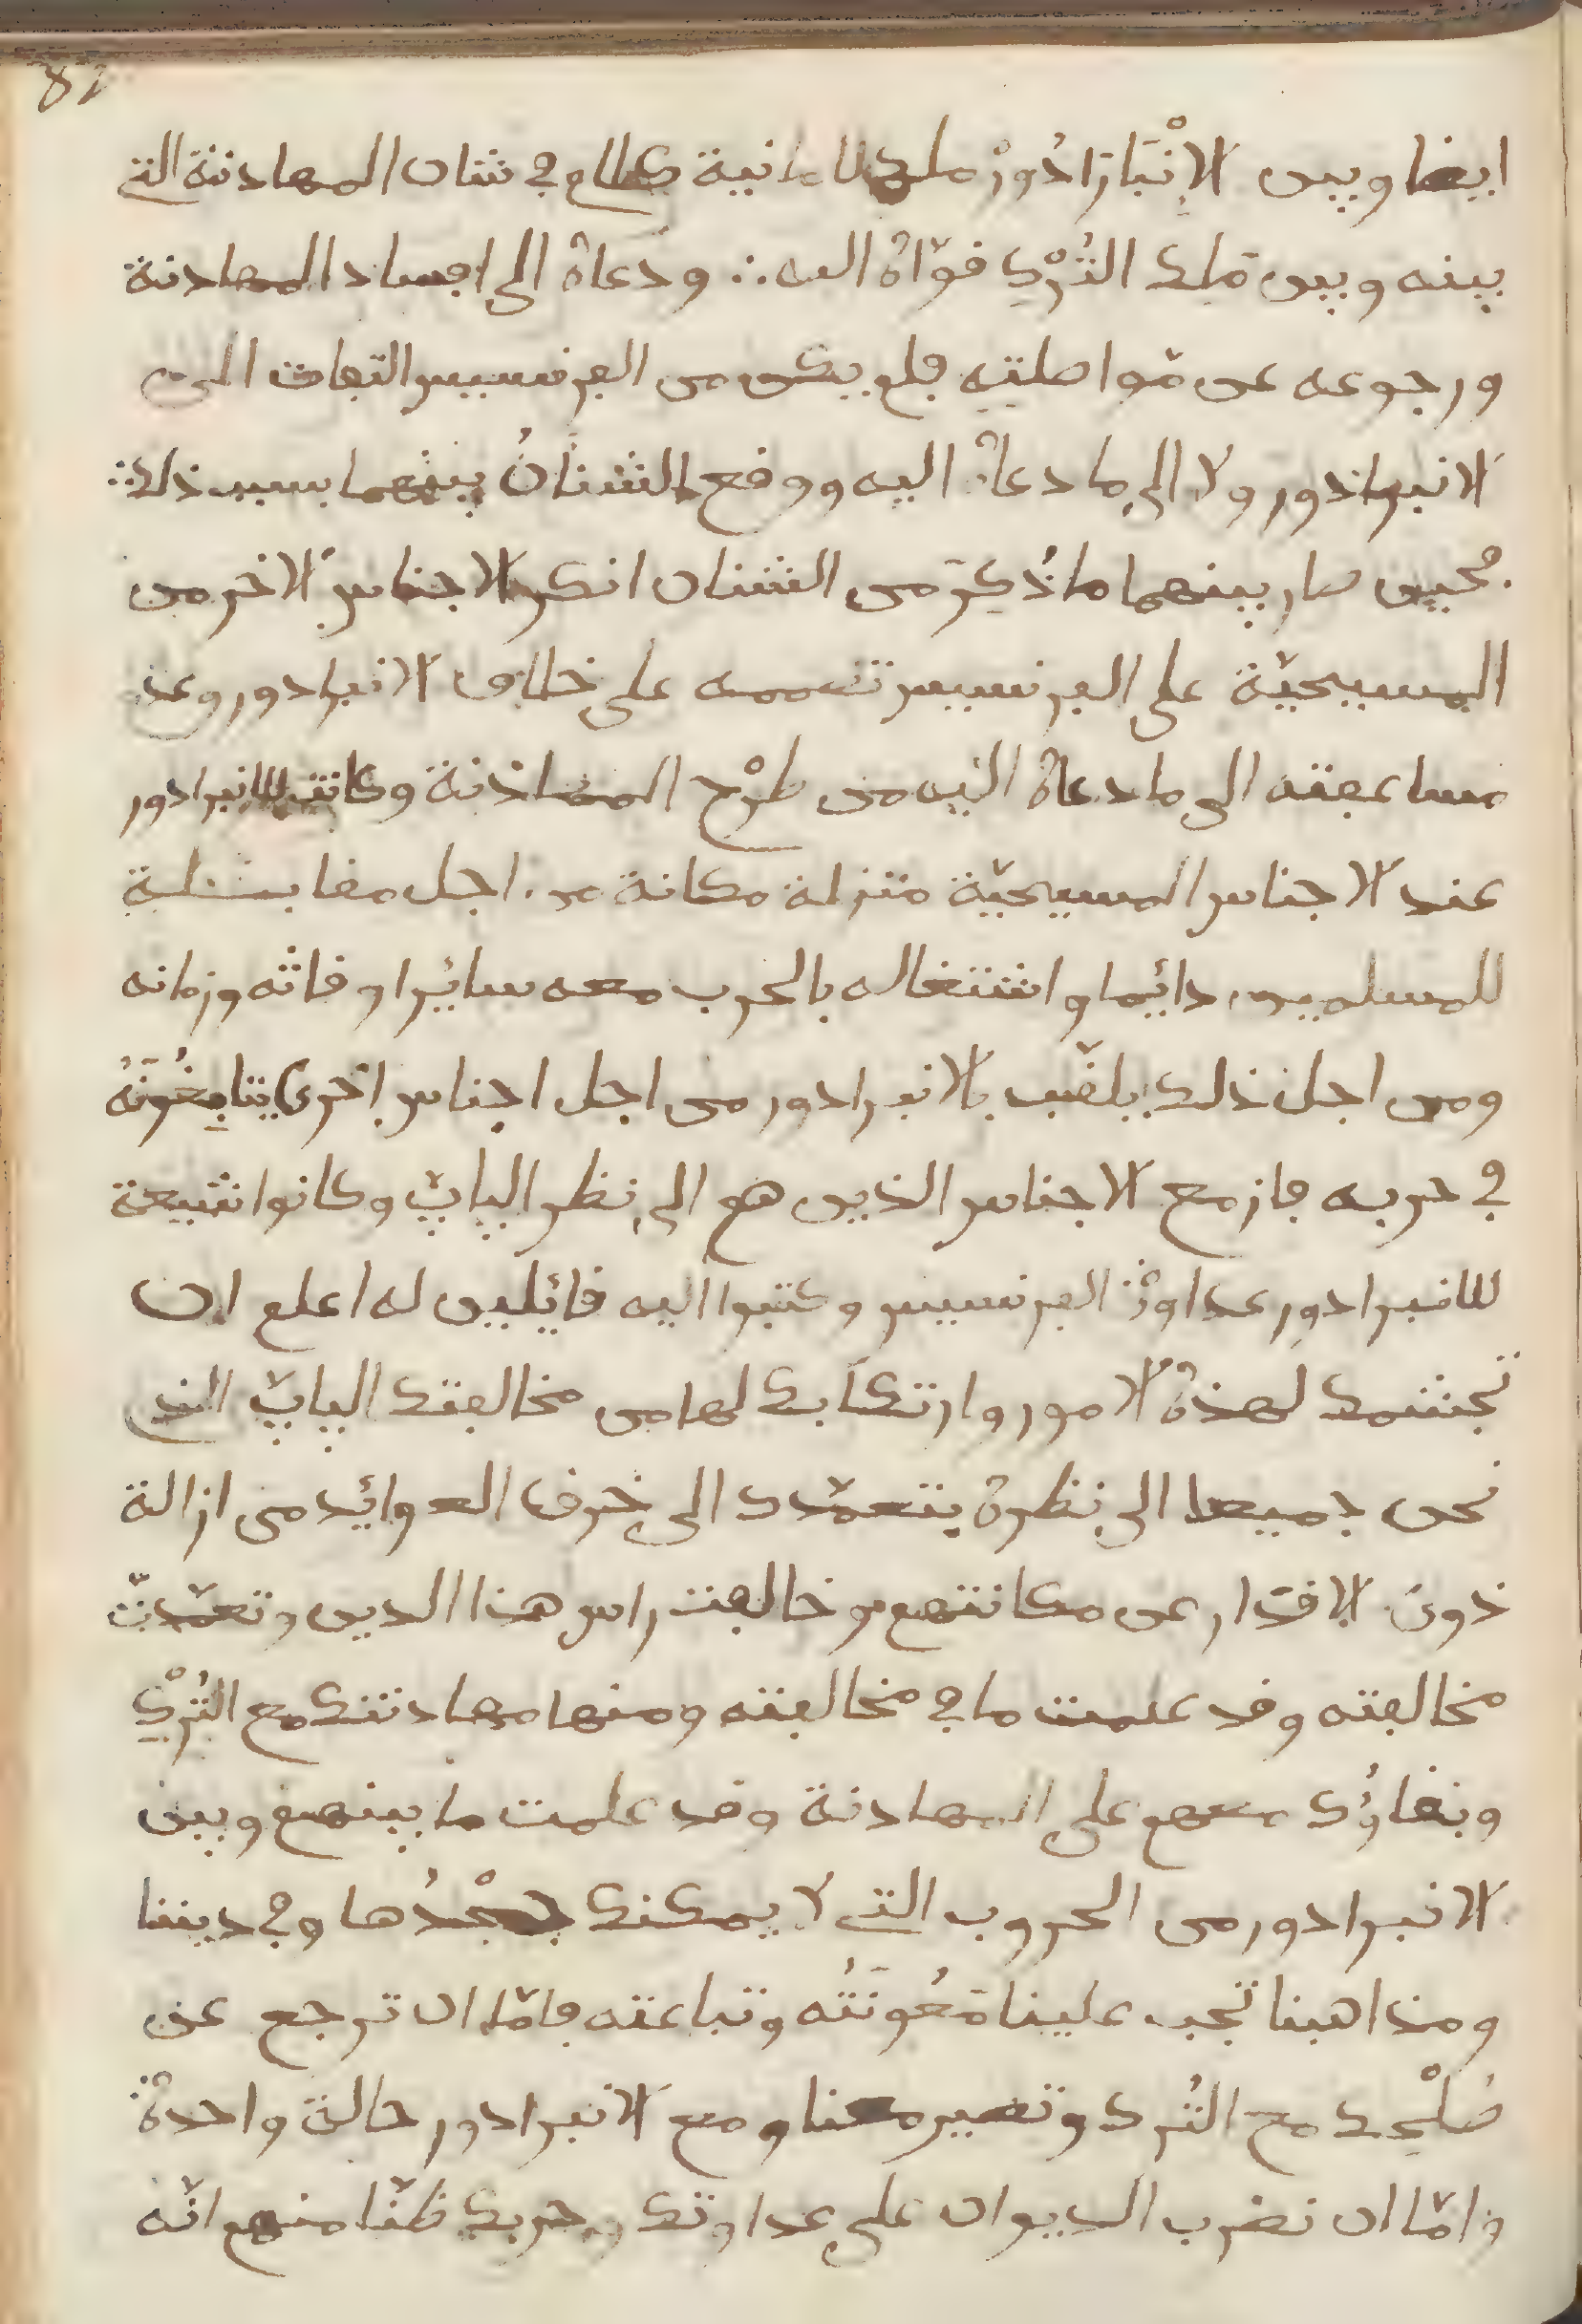 82
ايضا وبين الانْبَرَاذُورْ ملك لامانية كلام في شان المهادنة التي
بينه وبين مَلِك التُرْكِ فوّاهُ اليه ∴ ودعاهُ الى افساد المهادنة
ورجوعه عن مُواصلتِهِ فلم يكن من الفرنسيس التفات الى
الانبراذور ولا الى ما دعاهُ اليه ووقع الشنئانُ بينهما بسبب ذلك ∴
فحين صار بينهما ما ذُكِرَ من الشنئان انكر الاجناس الاخر من
المسيحيّة على الفرنسيس تصممه على خلاف الانبرادور وعدم
مساعفته الى ما دعاهُ اليه من طرْح المهاذنة وكانت للانبرادور
عند الاجناس المسيحيّة منزلة مكانة من اجل مقابلته
للمسلمين دائِما واشتغاله بالحرب معه سائِر اوقاته وزمانه
ومن اجل ذلك يلقّب بالانبرادور من اجل اجناس اخرى يتابِعُونَهُ
في حربه فاز مع الاجناس الذين هم الى نظر الباب وكانوا شيعة
للانبرادور عداوة الفرنسيس وكتبوا اليه قائِلين له اعلم ان
تجشمك لهذهِ الامور وارتكابك لها من مخالفتك الباب الذي
نحن جميعا الى نظرهِ يتعمّدك الى خرق العوائِد من ازالة
ذوِى الاقدار عن مكانتهم وخالفت راس هذا الدين وتعمّدتّ
مخالفته وقد علمت ما في مخالفته ومنها مهادنتك مع التُرْك
وبقاؤُك معهم على المهادنة وقد علمت ما بينهم وبين
الانبرادور من الحروب التي لا يمكنك جَحْدُها وفي ديننا
ومذاهبنا تجب علينا مَعُونَتُه وتباعته فامّا ان ترجع عن
صُلْحِك مع التُرك وتصير معنا ومع الانبرادور حالة واحدة ∴
وامّا ان نضرب الديوان على عداوتك وحربك ظنّا منهم انّه